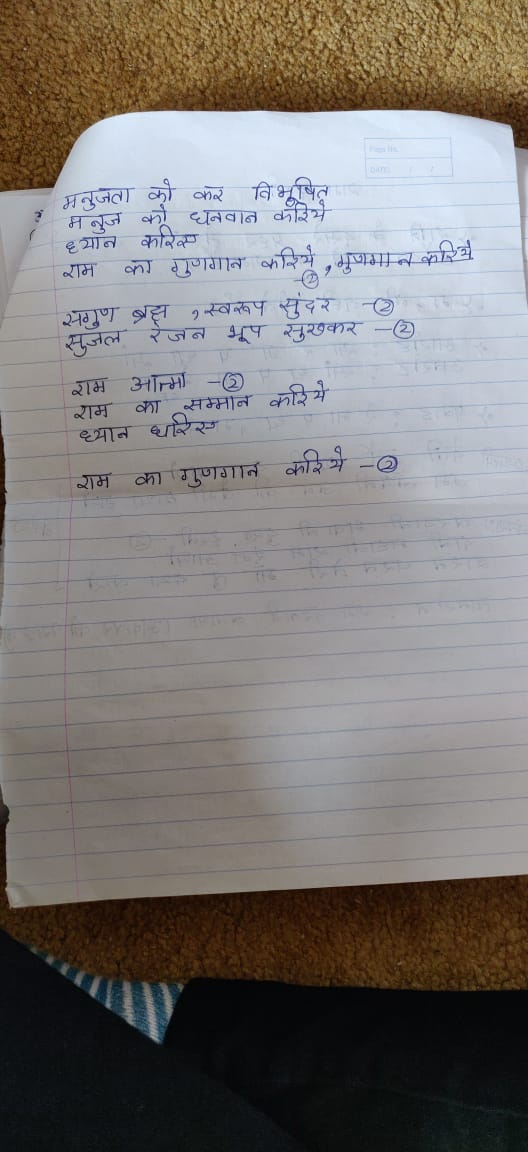 Page No.
DATE: / /
मनुजता को कर विभूषित
मनुज को धनवान करिये
ध्यान करिए
राम का गुणगान करिये, गुणगान करिये
-②
सगुण ब्रह्म, स्वरूप सुंदर -②
सुजल रंजन भूप सुखकर -②
राम आत्मा -②
राम का सम्मान करिये
ध्यान धरिए
राम का गुणगान करिये -②